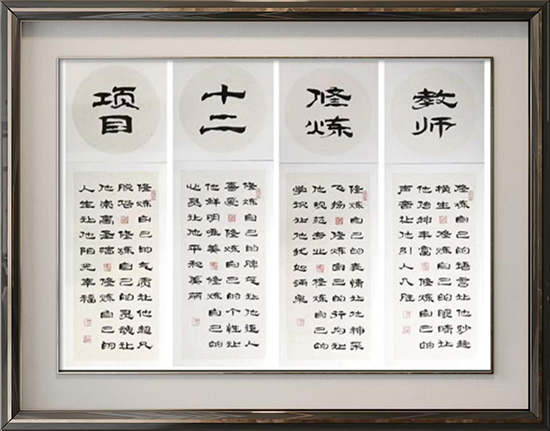 教师
修炼
十二
项目
修炼自己的语言让他妙趣
横生修炼自己的眼睛让
他传神丰富修炼自己的
声音让他引人入胜
修炼自己的表情让他神采
飞扬修炼自己的行为让
他规范专业修炼自己的
学识让他犹如涌泉
修炼自己的脾气让他逗人
喜爱修炼自己的个性让
他鲜明唯美修炼自己的
心灵让他平和美丽
修炼自己的气质让他超凡
脱俗修炼自己的灵魂让
他崇高修炼自己的
人生让他阳光幸福